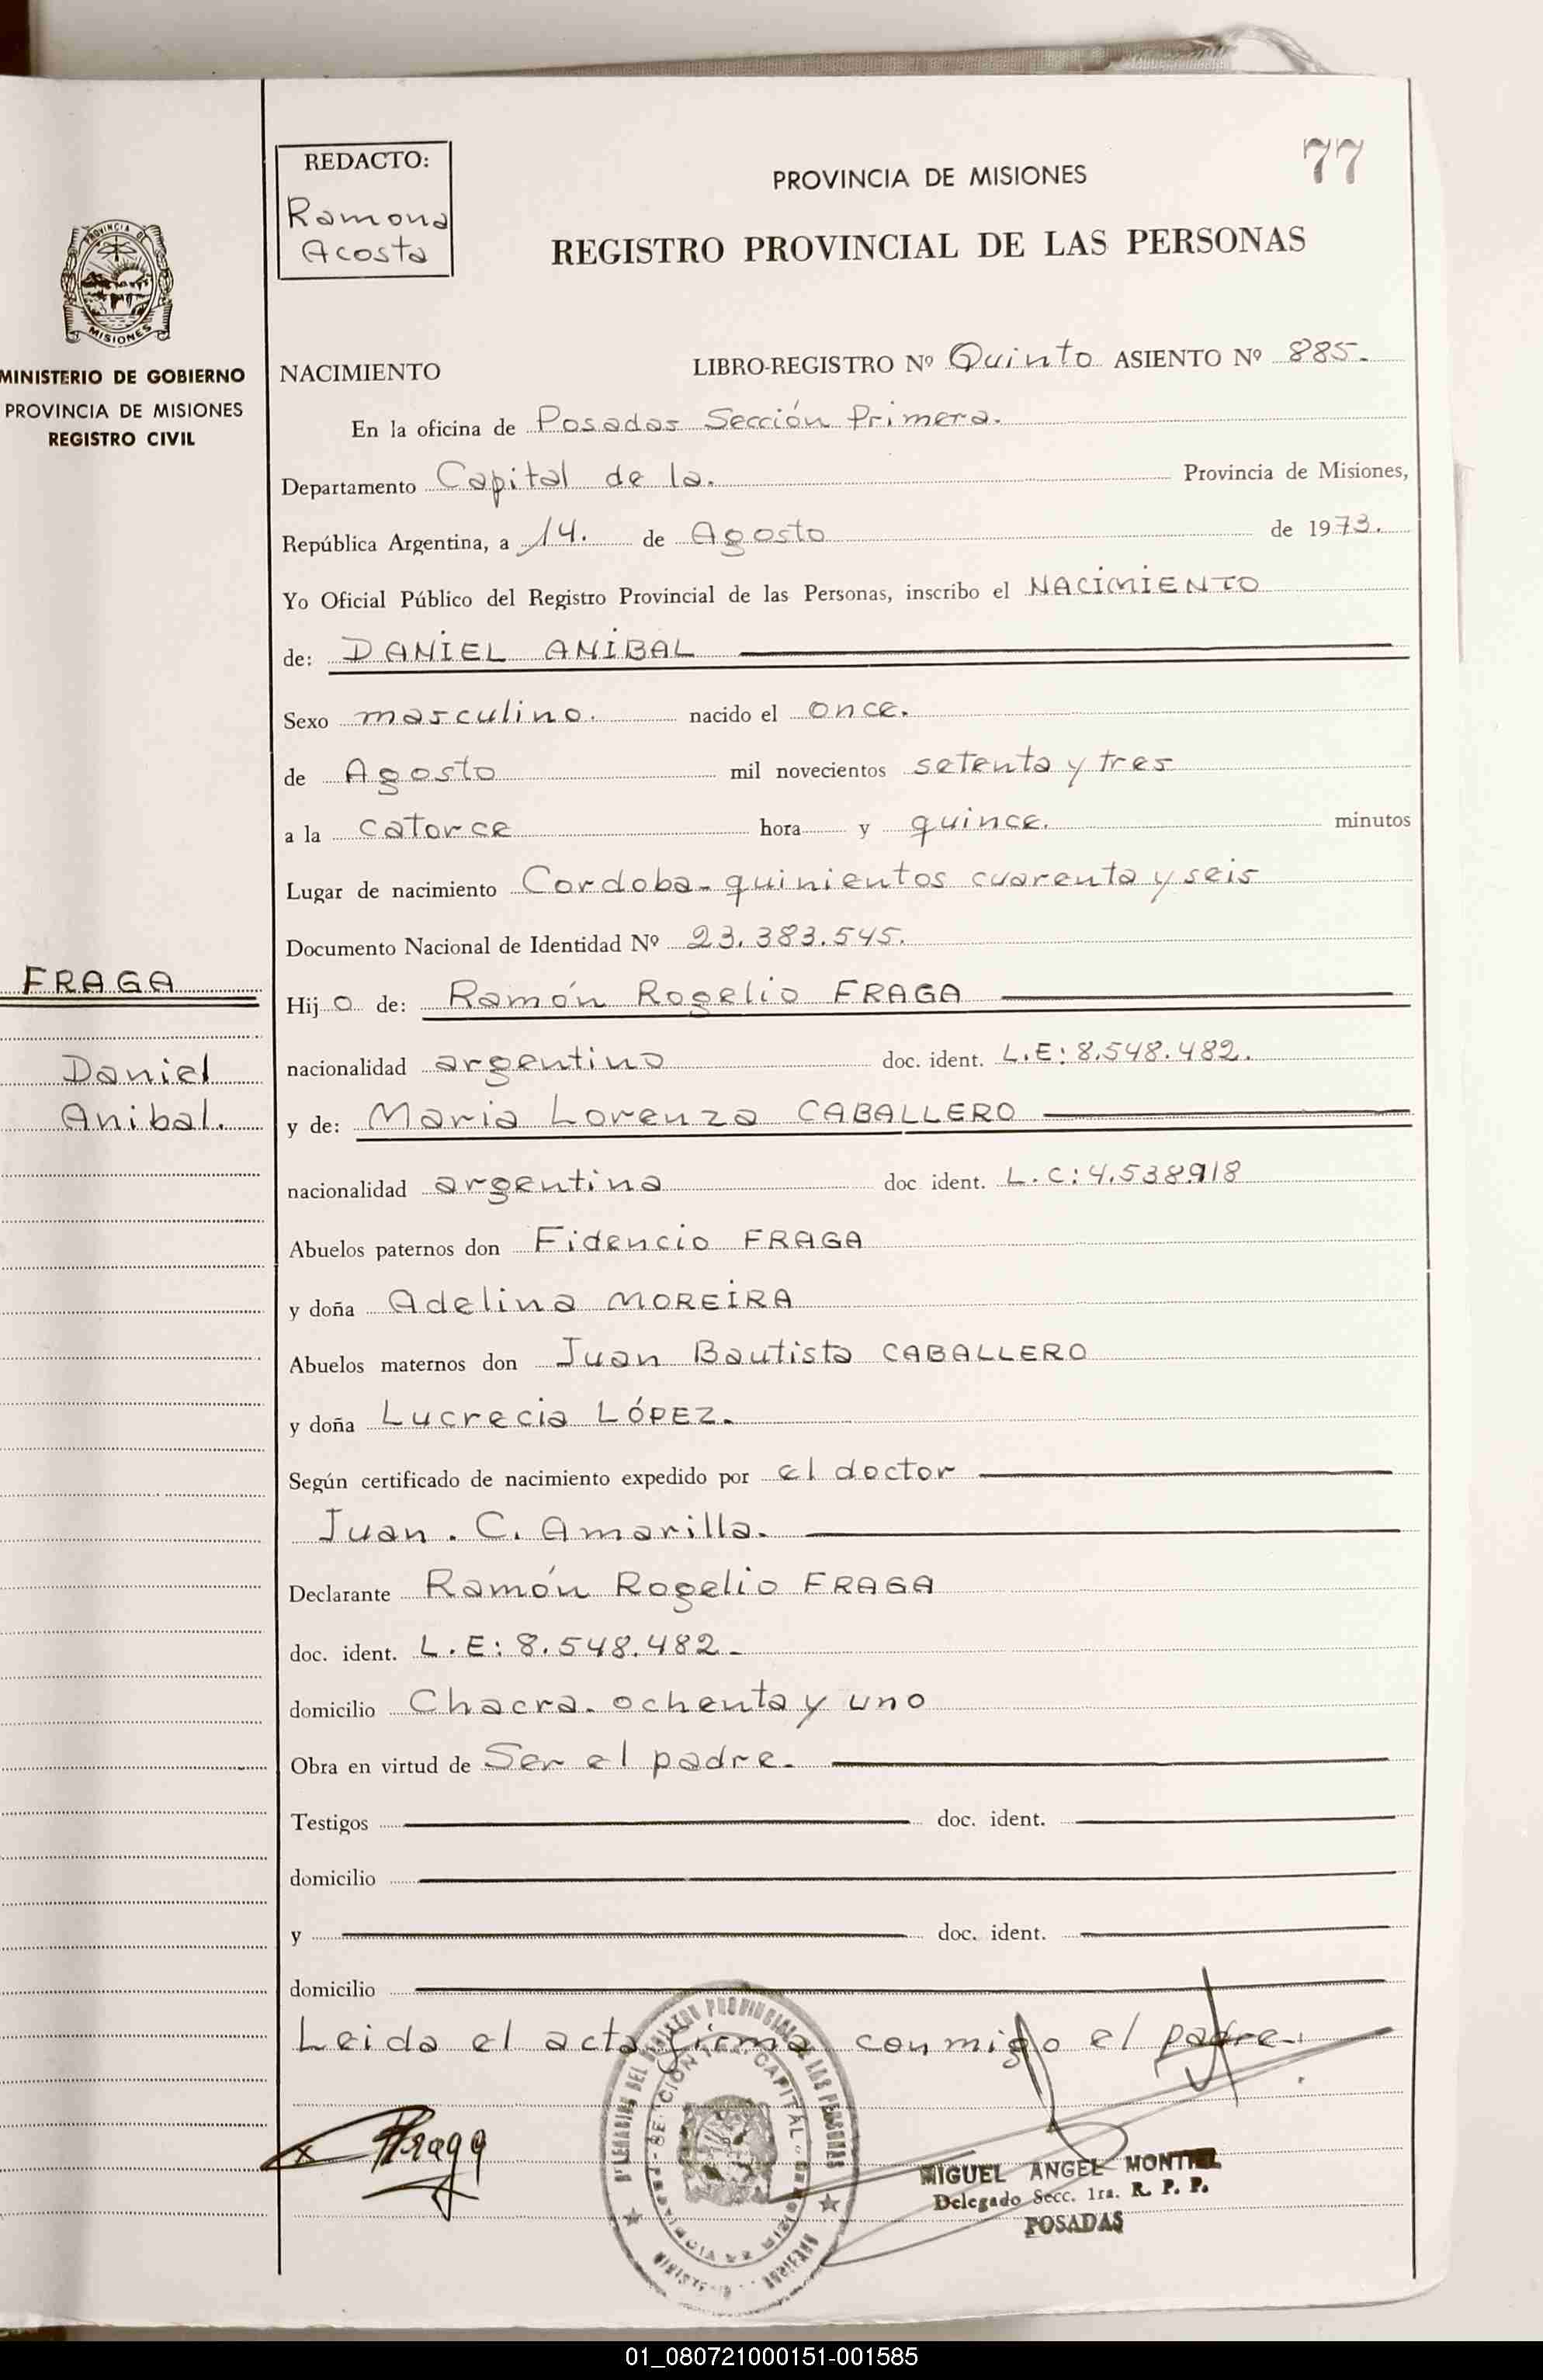 77
REDACTO:
Ramona
Acosta
PROVINCIA DE MISIONES
REGISTRO PROVINCIAL DE LAS PERSONAS
PROVINCIA DE
MISIONES
MINISTERIO DE GOBIERNO
PROVINCIA DE MISIONES
REGISTRO CIVIL
NACIMIENTO LIBRO-REGISTRO Nº Quinto ASIENTO Nº 885.
En la oficina de Posadas Sección Primera.
Departamento Capital de la. Provincia de Misiones,
República Argentina, a 14. de Agosto de 1973.
Yo Oficial Público del Registro Provincial de las Personas, inscribo el NACIMIENTO
de: DANIEL ANIBAL
Sexo masculino. nacido el once.
de Agosto mil novecientos setenta y tres
a la catorce hora y quince. minutos
Lugar de nacimiento Cordoba- quinientos cuarenta y seis
Documento Nacional de Identidad Nº 23.383.545.
FRAGA
Daniel
Anibal.
Hijo de: Ramón Rogelio FRAGA
nacionalidad argentino doc. ident. L.E: 8.548.482.
y de: Maria Lorenza CABALLERO
nacionalidad argentina doc ident. L.C: 4.538918
Abuelos paternos don Fidencio FRAGA
y doña Adelina MOREIRA
Abuelos maternos don Juan Bautista CABALLERO
y doña Lucrecia LÓPEZ.
Según certificado de nacimiento expedido por el doctor
Juan. C. Amarilla.
Declarante Ramón Rogelio FRAGA
doc. ident. L.E: 8.548.482-
domicilio Chacra- ochenta y uno
Obra en virtud de Ser el padre.
Testigos doc. ident.
domicilio
y doc. ident.
domicilio
Leida el acta firma conmigo el padre.
x Fraga
DEL REGISTRO PROVINCIAL DE LAS PERSONAS
CAPITAL
MIGUEL ANGEL MONTIEL
Delegado Secc. 1ra. R. P. P.
POSADAS
01_080721000151-001585